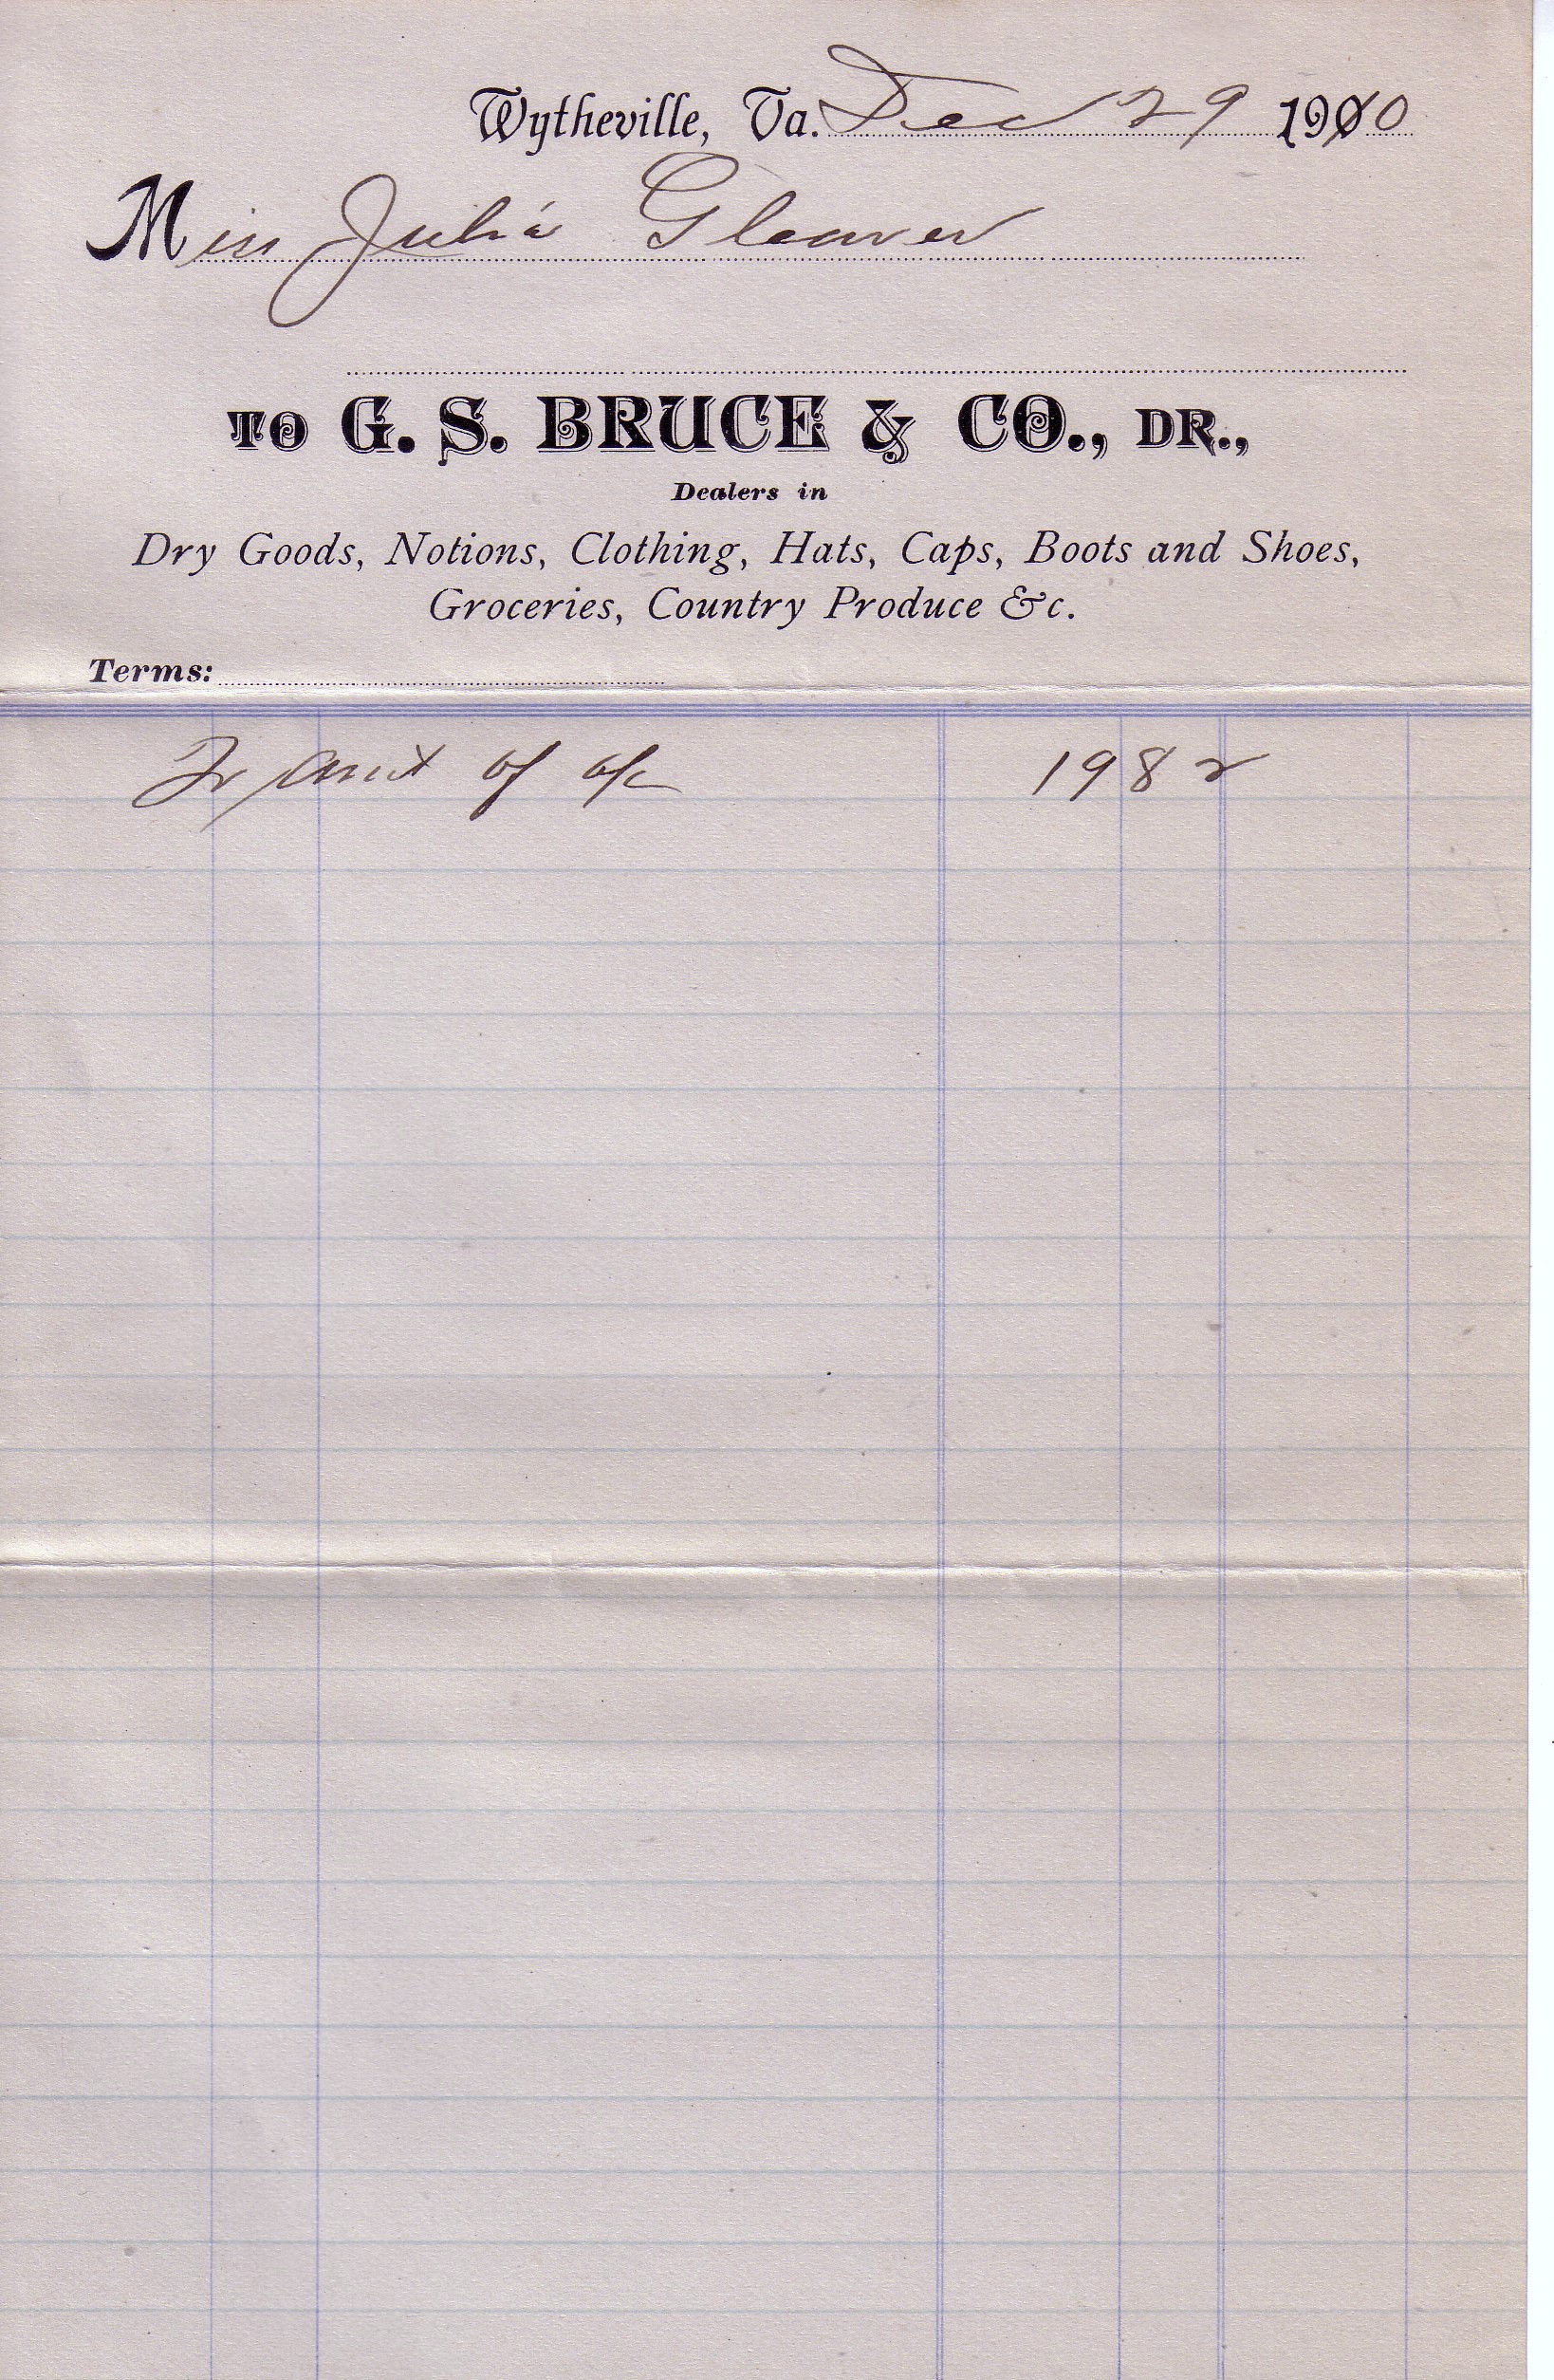 Wytheville, Va. Dec 29 1910
Miss Julia Gleaver
TO G. S. BRUCE & CO., DR.,
Dealers in
Dry Goods, Notions, Clothing, Hats, Caps, Boots and Shoes,
Groceries, Country Produce &c.
Terms:
To amt of a/c 19 82